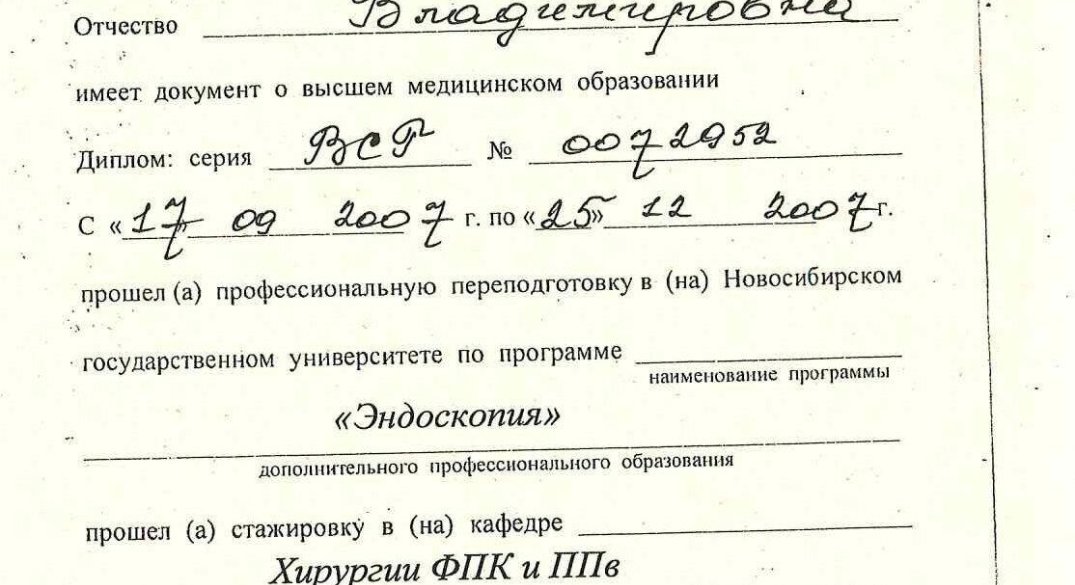 Отчество Владимировна
имеет документ о высшем медицинском образовании
Диплом: серия ВСГ № 0072952
С «17» 09 2007 г. по «25» 12 2007 г.
прошел (а) профессиональную переподготовку в (на) Новосибирском
государственном университете по программе
наименование программы
«Эндоскопия»
дополнительного профессионального образования
прошел (а) стажировку в (на) кафедре
Хирургии ФПК и ППв